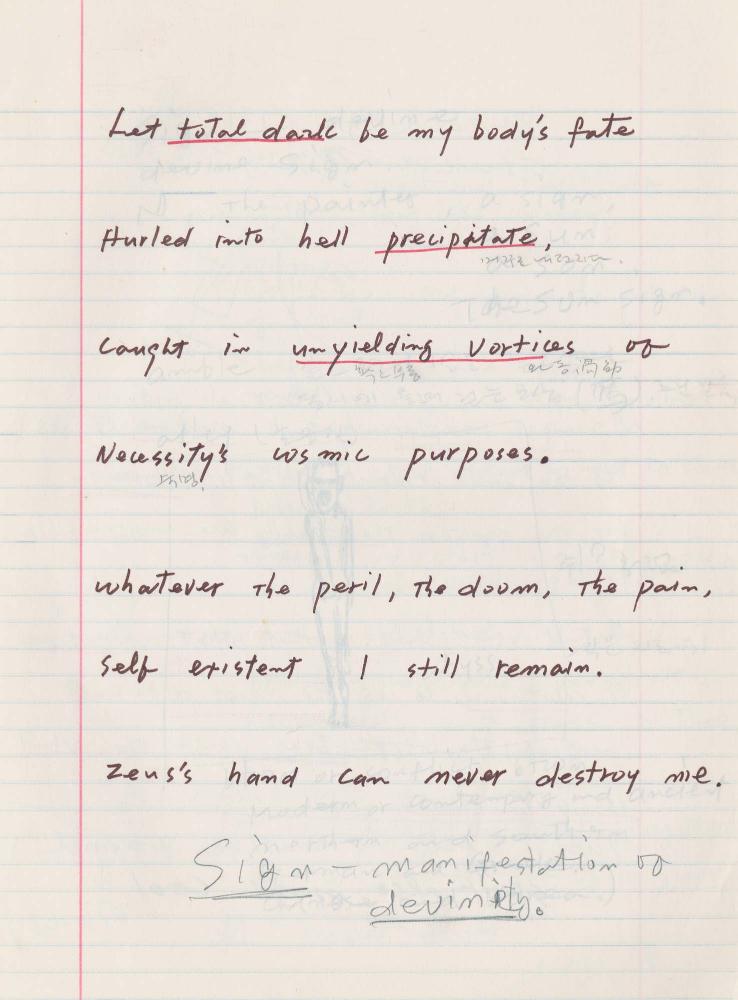 Let total dark be my body's fate
Hurled into hell precipitate,
caught in unyielding vortices of
Necessity's cosmic purposes.
whatever the peril, the doom, the pain,
self existent I still remain.
Zeus's hand can never destroy me.
Sign – manifestation of
devinity.